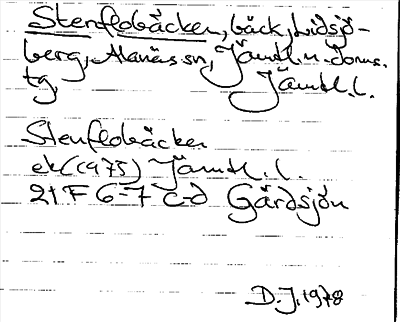 Stenflobäcken, bäck, Lidsjö-
berg, Alanäs sn, Jämtl. n. doms.
tg, Jämtl. l.
Stenflobäcken
ek (1975) Jämtl. l.
21 F 6-7 c-d Gärdsjön
D.J. 1978